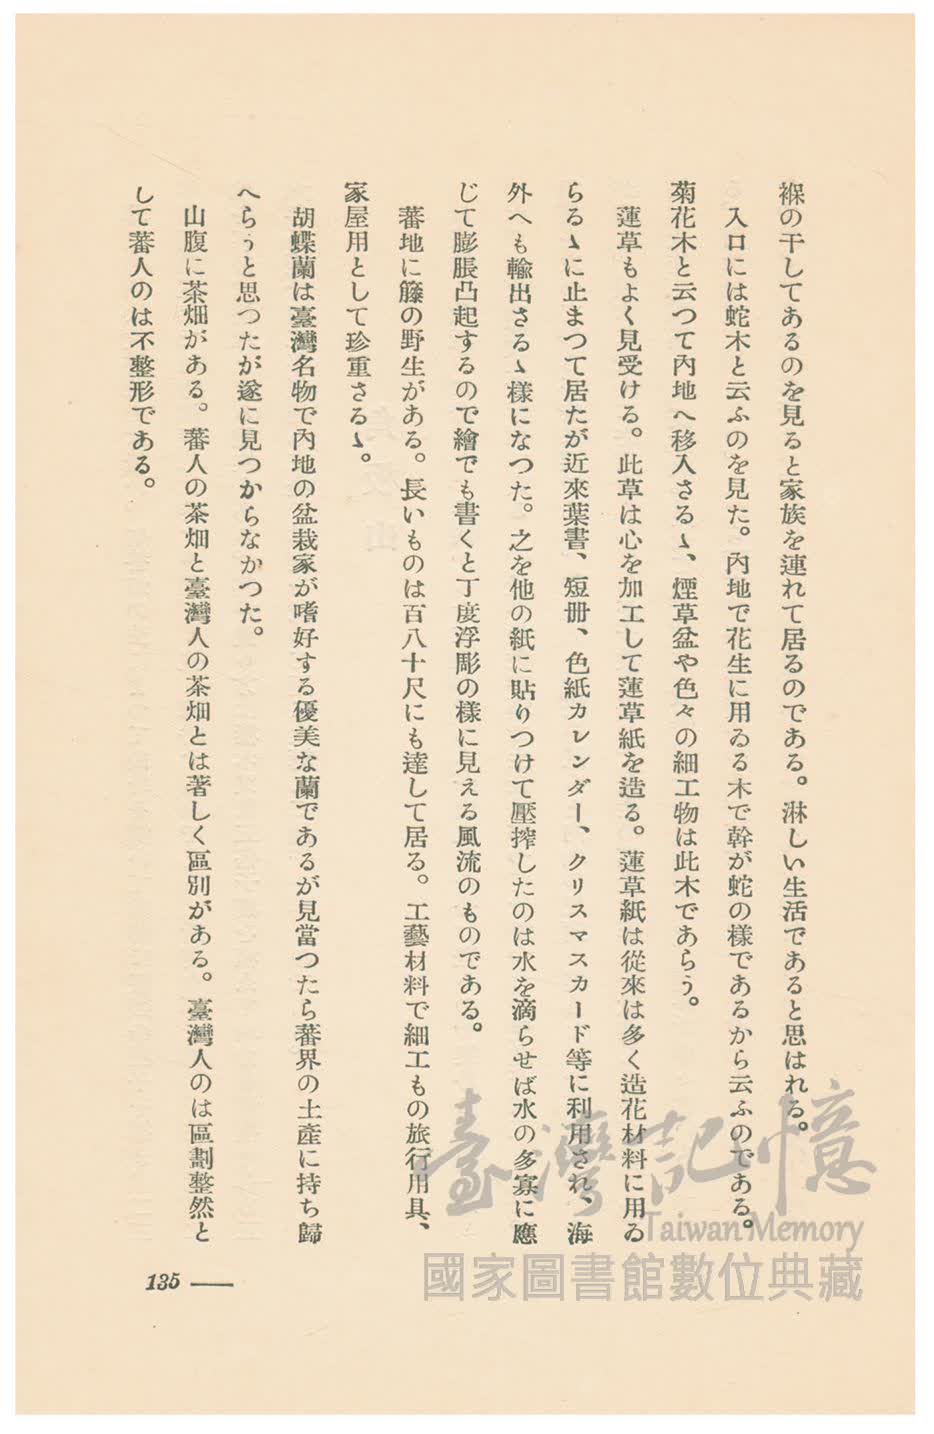 褓の干してあるのを見ると家族を連れて居るのである。淋しい生活であると思はれる。
入口には蛇木と云ふのを見た。內地で花生に用ゐる木で幹が蛇の樣であるから云ふのである。
菊花木と云つて內地へ移入さるゝ、煙草盆や色々の細工物は此木であらう。
蓮草もよく見受ける。此草は心を加工して蓮草紙を造る。蓮草紙は從來は多く造花材料に用ゐ
らるゝに止まつて居たが近來葉書、短冊、色紙カレンダー、クリスマスカード等に利用され、海
外へも輸出さるゝ樣になつた。之を他の紙に貼りつけて壓搾したのは水を滴らせば水の多寡に應
じて膨脹凸起するので繪でも書くと丁度浮彫の樣に見える風流のものである。
蕃地に籐の野生がある。長いものは百八十尺にも達して居る。工藝材料で細工もの旅行用具、
家屋用として珍重さるゝ。
胡蝶蘭は臺灣名物で內地の盆栽家が嗜好する優美な蘭であるが見當つたら蕃界の土產に持ち歸
へらうと思つたが遂に見つからなかつた。
山腹に茶畑がある。蕃人の茶畑と臺灣人の茶畑とは著しく區別がある。臺灣人のは區劃整然と
して蕃人のは不整形である。
135 ——
臺灣記憶
Taiwan Memory
國家圖書館數位典藏